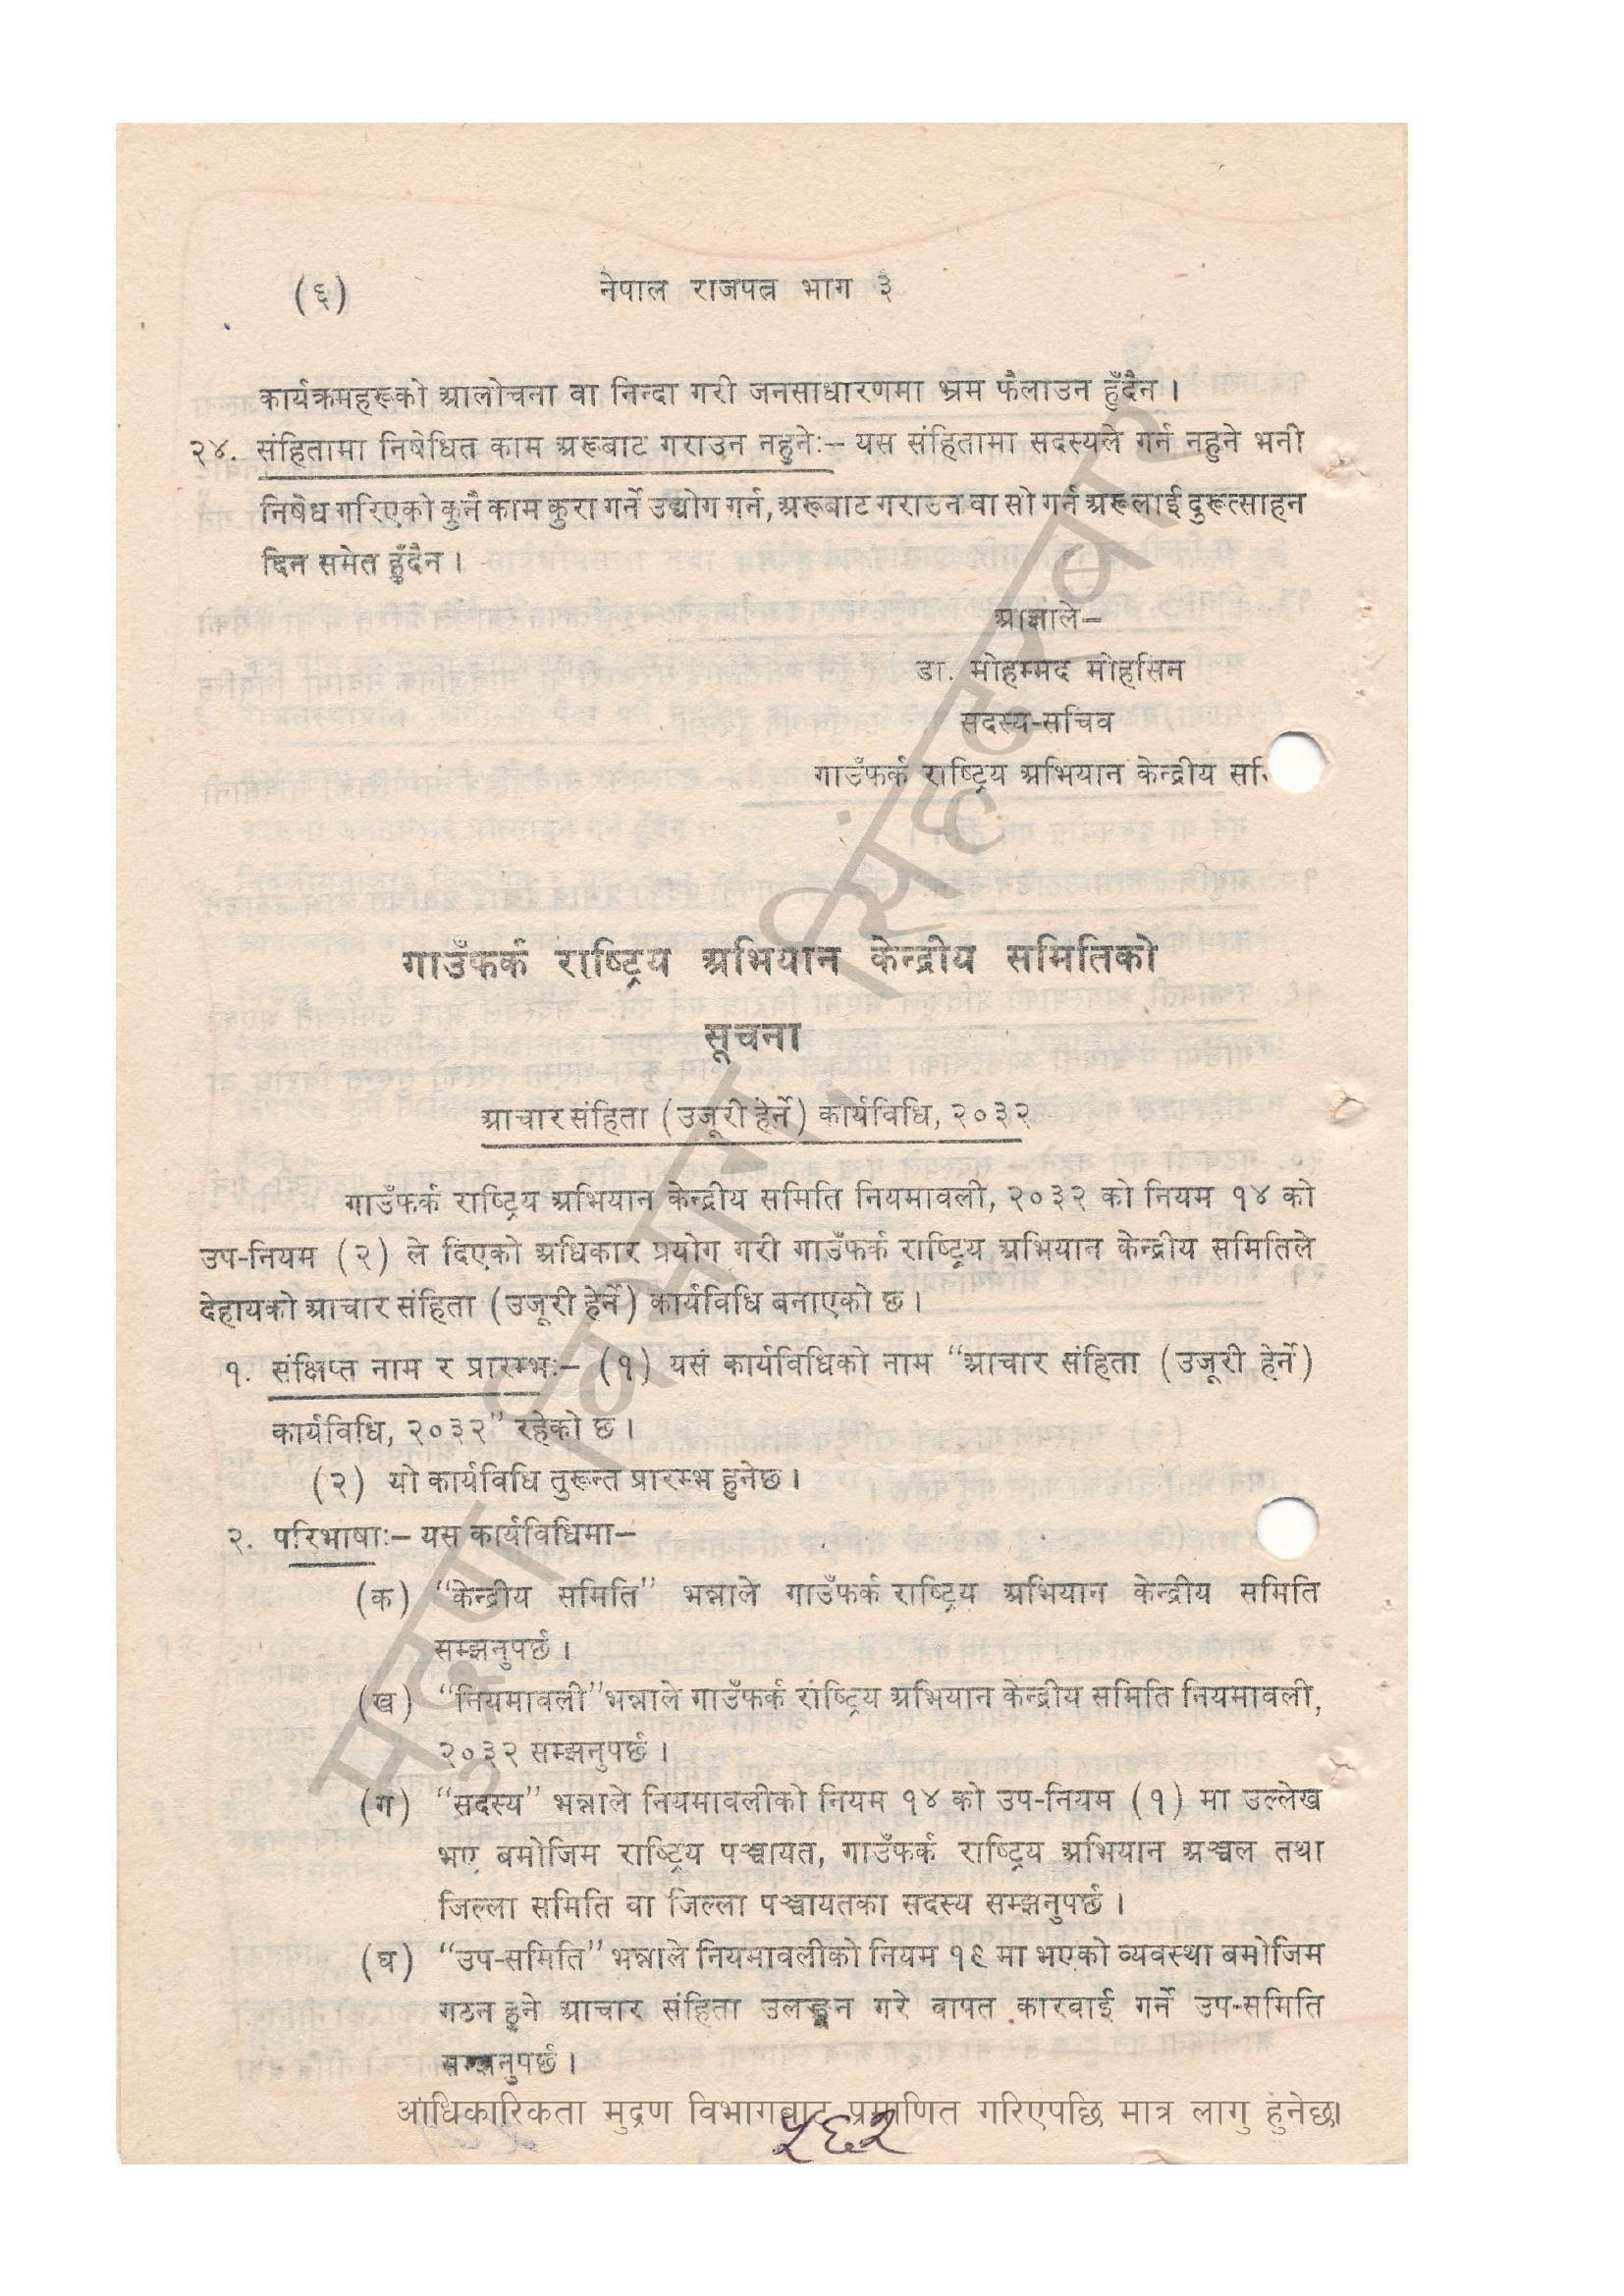 (६) नेपाल राजपत्र भाग ३
कार्यक्रमहरूको आलोचना वा निन्दा गरी जनसाधारणमा भ्रम फैलाउन हुँदैन ।
२४. संहितामा निषेधित काम अरूबाट गराउन नहुनेः– यस संहितामा सदस्यले गर्न नहुने भनी
निषेध गरिएको कुनै काम कुरा गर्ने उद्योग गर्न, अरूबाट गराउन वा सो गर्न अरूलाई दुरूत्साहन
दिन समेत हुँदैन ।
आज्ञाले–
डा. मोहम्मद मोहसिन
सदस्य-सचिव
गाउँफर्क राष्ट्रिय अभियान केन्द्रीय
गाउँफर्क राष्ट्रिय अभियान केन्द्रीय समितिको
सूचना
आचार संहिता (उजूरी हेर्ने) कार्यविधि, २०३२
गाउँफर्क राष्ट्रिय अभियान केन्द्रीय समिति नियमावली, २०३२ को नियम १४ को
उप-नियम (२) ले दिएको अधिकार प्रयोग गरी गाउँफर्क राष्ट्रिय अभियान केन्द्रीय समितिले
देहायको आचार संहिता (उजूरी हेर्ने) कार्यविधि बनाएको छ ।
१. संक्षिप्त नाम र प्रारम्भः– (१) यस कार्यविधिको नाम “आचार संहिता (उजूरी हेर्ने)
कार्यविधि, २०३२” रहेको छ ।
(२) यो कार्यविधि तुरून्त प्रारम्भ हुनेछ ।
२. परिभाषाः– यस कार्यविधिमा–
(क) “केन्द्रीय समिति” भन्नाले गाउँफर्क राष्ट्रिय अभियान केन्द्रीय समिति
सम्झनुपर्छ ।
(ख) “नियमावली” भन्नाले गाउँफर्क राष्ट्रिय अभियान केन्द्रीय समिति नियमावली,
२०३२ सम्झनुपर्छ ।
(ग) “सदस्य” भन्नाले नियमावलीको नियम १४ को उप-नियम (१) मा उल्लेख
भए बमोजिम राष्ट्रिय पञ्चायत, गाउँफर्क राष्ट्रिय अभियान अञ्चल तथा
जिल्ला समिति वा जिल्ला पञ्चायतका सदस्य सम्झनुपर्छ ।
(घ) “उप-समिति” भन्नाले नियमावलीको नियम १६ मा भएको व्यवस्था बमोजिम
गठन हुने आचार संहिता उलङ्घन गरे वापत कारवाई गर्ने उप-समिति
सम्झनुपर्छ ।
आधिकारिकता मुद्रण विभागबाट प्रमाणित गरिएपछि मात्र लागु हुनेछ।
५६२
मुद्रण विभाग, सिंहदरबार